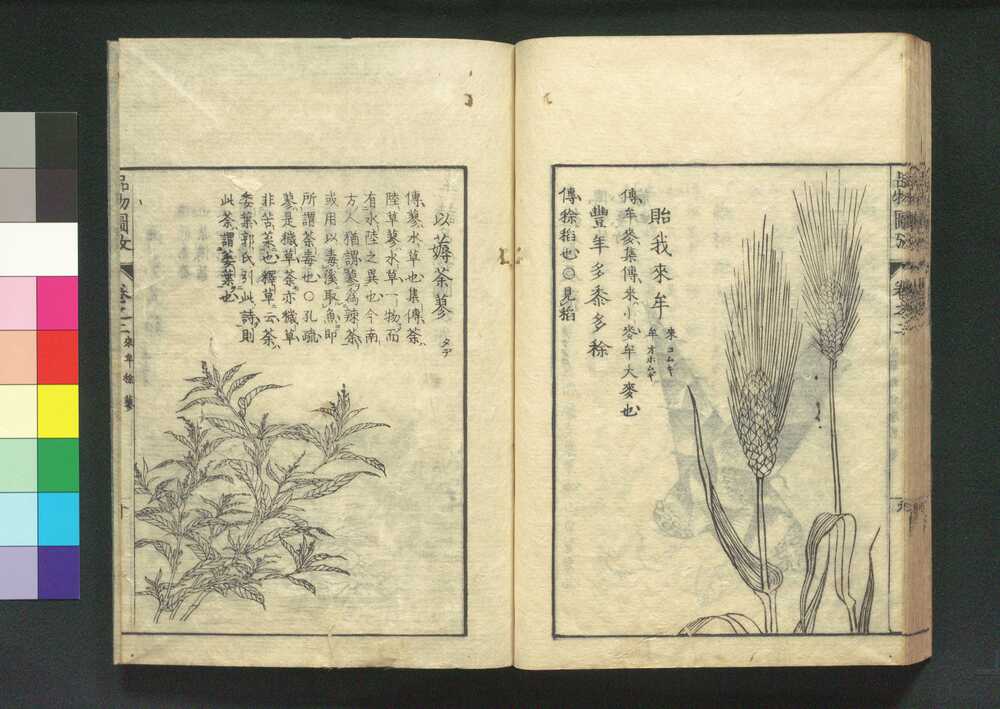 貽我來牟
來コムギ
牟オホムギ
傳牟麥集傳來小麥牟大麥也
豐年多黍多稌
傳稌稻也○見稻
品物圖攷
卷之二
以薅荼蓼
タデ
傳蓼水草也集傳荼
陸草蓼水草一物而
有水陸之異也今南
方人猶謂蓼爲辣荼
或用以毒溪取魚即
所謂荼毒也○孔疏
蓼是穢草荼亦穢草
非苦菜也釋草云荼
委葉郭氏引此詩則
此荼謂委葉也
品物圖攷
卷之二
來牟稌蓼
十